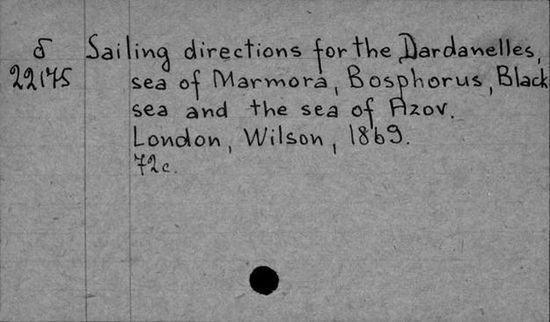 б Sailing directions for the Dardanelles,
22175 sea of Marmora, Bosphorus, Black
sea and the sea of Azov.
London, Wilson, 1869.
72c.